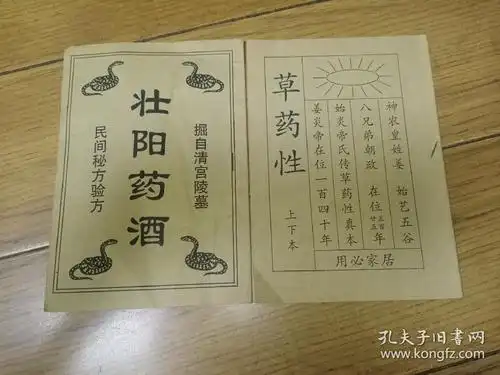 掘自清宫陵墓
壮阳药酒
民间秘方验方
草药性
上下本
神农皇姓姜 始艺五谷
八兄弟朝政 在位三百廿五年
始炎帝氏传草药性真本
姜炎帝在位一百四十年
用必家居
孔夫子旧书网
www.kongfz.com